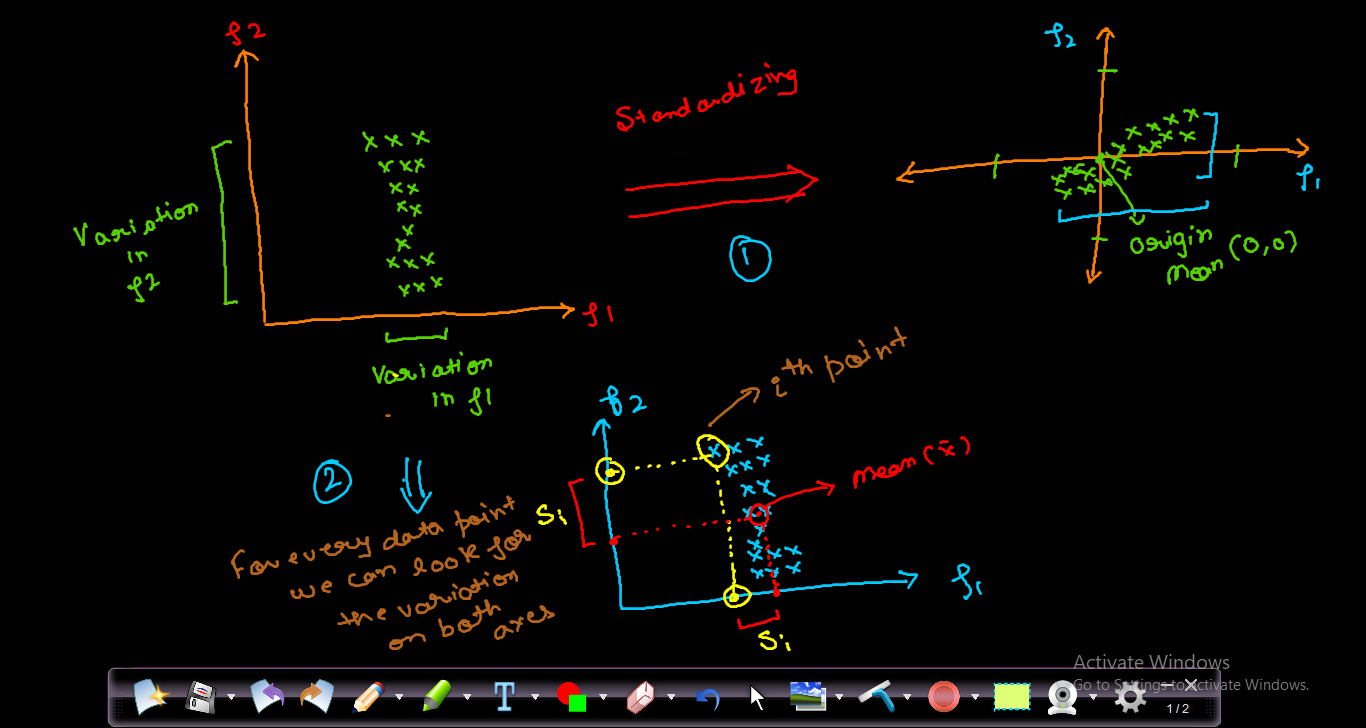 f2
Variation
in
f2
f1
Variation
in f1
Standardizing
1
f2
f1
origin
mean (0,0)
2
For every data point
we can look for
the variation
on both
axes
f2
ith point
mean (x̄)
Si
f1
Si
Activate Windows
Go to Settings to activate Windows.
T
1/2